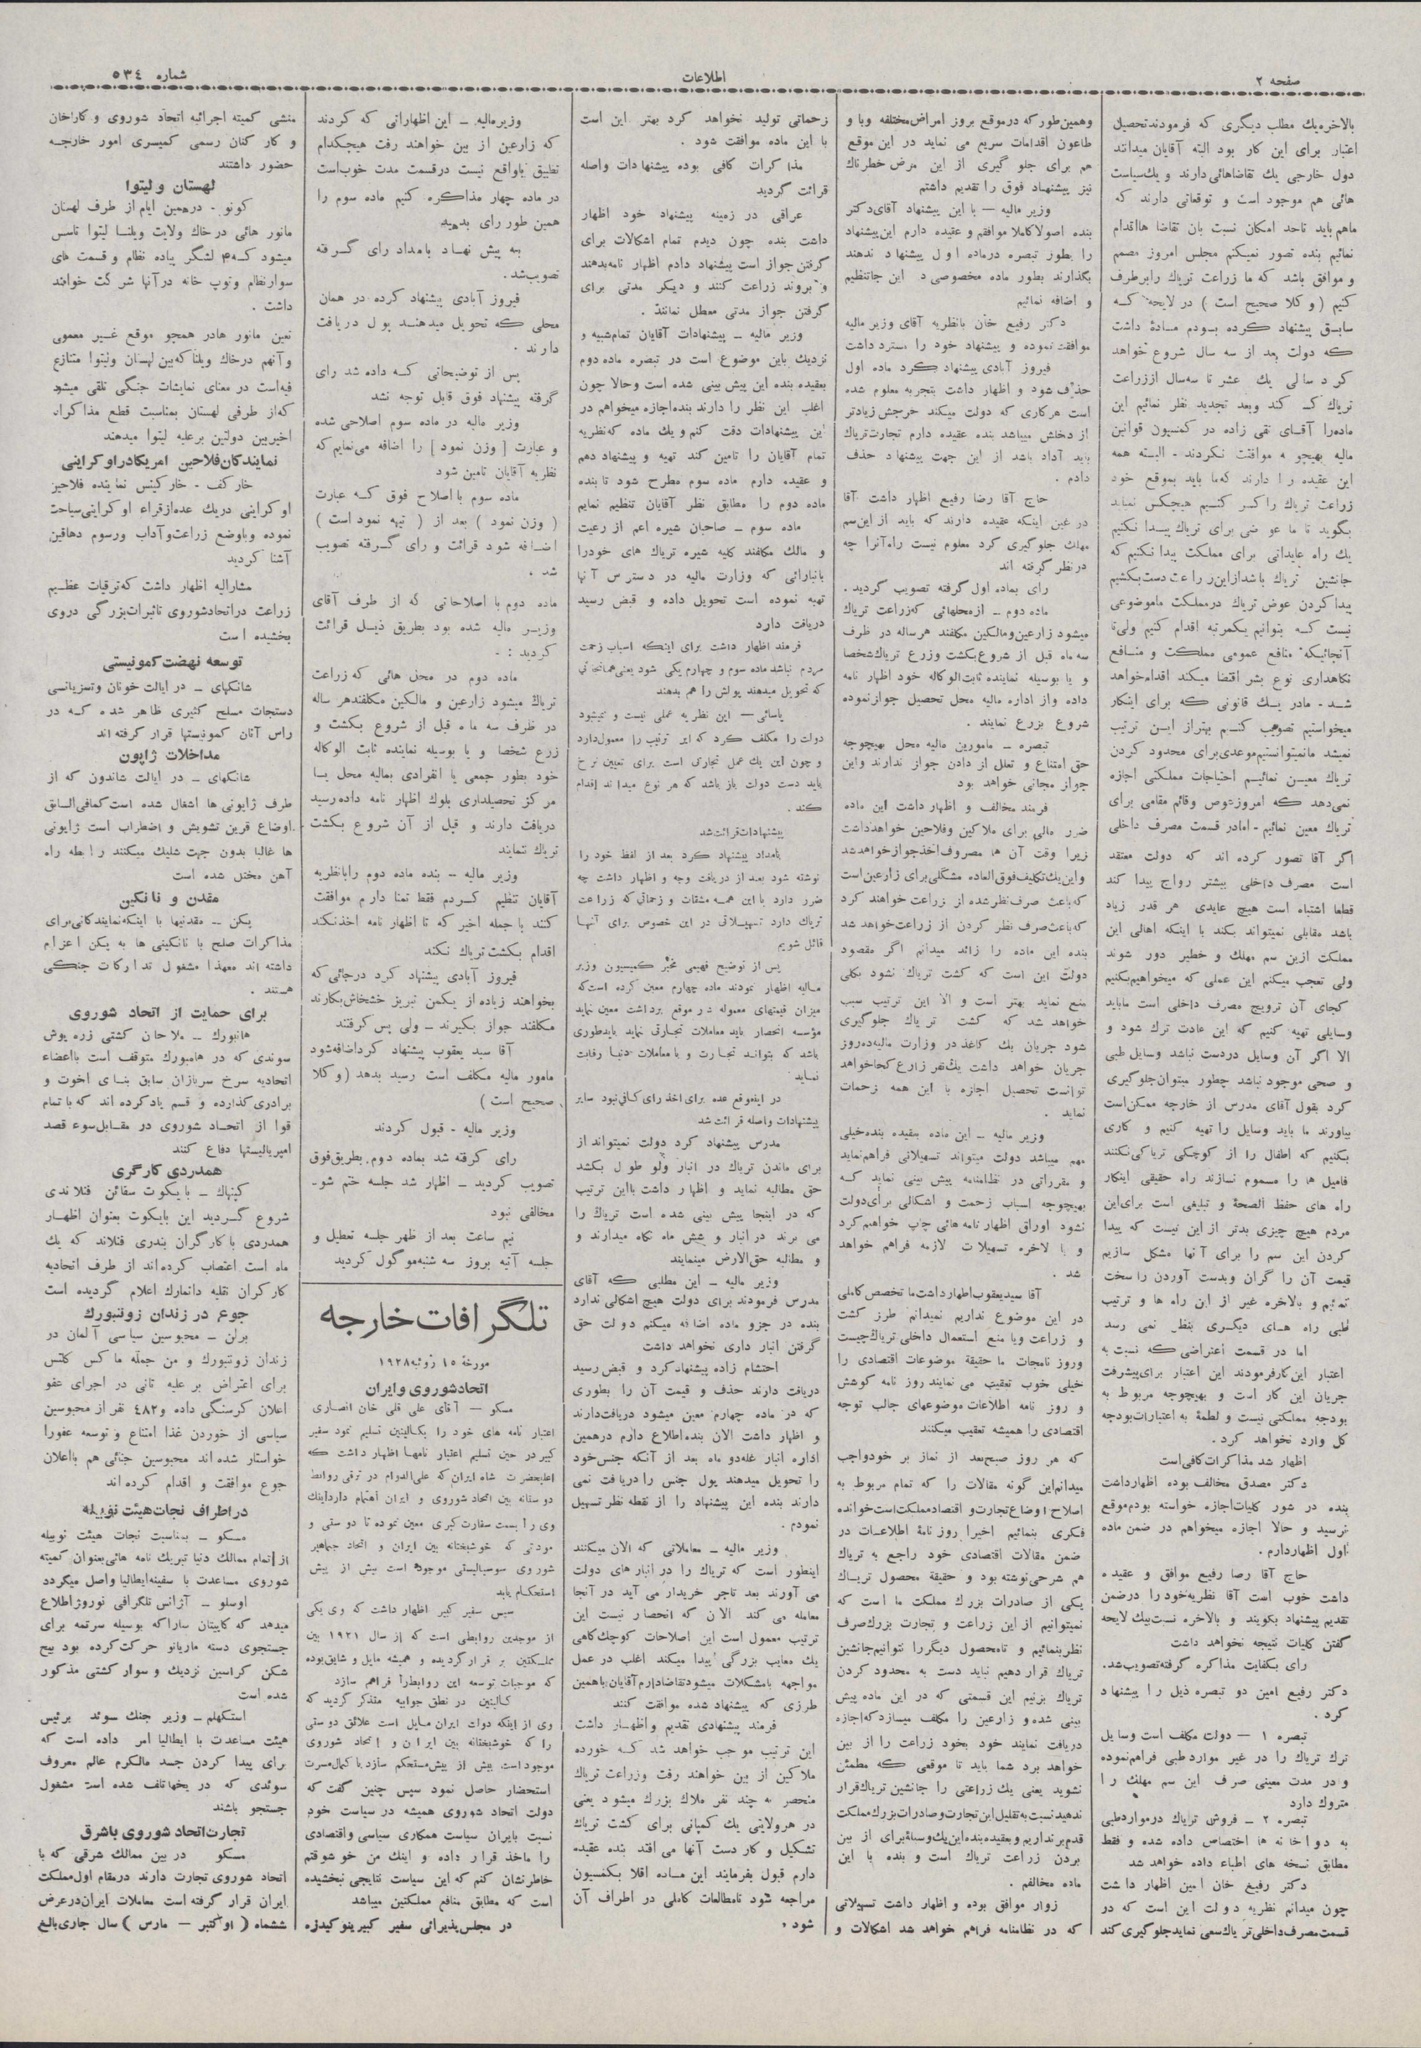 صفحه ۲
اطلاعات
شماره ۵۳٤
بالاخره یك مطلب دیگری که فرمودند تحصیل
اعتبار برای این کار بود البته آقایان میدانند
دول خارجی یك تقاضاهائی دارند و یك سیاست
هائی هم موجود است و توقعاتی دارند که
ماهم باید تاحد امکان نسبت بان تقاضا هااقدام
نمائیم بنده تصور نمیکنم مجلس امروز مصمم
و موافق باشد که ما زراعت تریاك رابرطرف
کنیم ( وکلا صحیح است ) در لایحه که
سابق پیشنهاد کرده بودم مادهٔ داشت
که دولت بعد از سه سال شروع خواهد
کرد سالی یك عشر تا سه سال اززراعت
تریاك کم کند وبعد تجدید نظر نمائیم این
ماده را آقای تقی زاده در کمسیون قوانین
مالیه بهیچوجه موافقت نکردند - البته همه
این عقیده را دارند که ما باید بموقع خود
زراعت تریاك را کسر کنیم هیچکس نمیاید
بگوید تا ما عوضی برای تریاك پیدا نکنیم
یك راه عایداتی برای مملکت پیدا نکنیم که
جانشین تریاك باشد از این زراعت دست بکشیم
پیدا کردن عوض تریاك درمملکت ماموضوعی
نیست که بتوانیم یکمرتبه اقدام کنیم ولی تا
آنجائیکه منافع عمومی مملکت و منافع
نگاهداری نوع بشر اقتضا میکند اقدام خواهد
شد - مادر یك قانونی که برای اینکار
میخواستیم تصویب کنیم بهتر از این ترتیب
نمیشد مانمیتوانستیم موعدی برای محدود کردن
تریاك معین نمائیم احتیاجات مملکتی اجازه
نمی‌دهد که امروز بتوانیم قائم مقامی برای
تریاك معین نمائیم - امادر قسمت مصرف داخلی
اگر آقا تصور کرده اند که دولت معتقد
است مصرف داخلی بیشتر رواج پیدا کند
قطعا اشتباه است هیچ عایدی هر قدر زیاد
باشد مقابلی نمیتواند بکند با اینکه اهالی این
مملکت ازین سم مهلك و خطیر دور شوند
ولی تعجب میکنم این عملی که میخواهیم بکنیم
کجای آن ترویج مصرف داخلی است ماباید
وسایلی تهیه کنیم که این عادت ترك شود و
الا اگر آن وسایل دردست نباشد وسایل طبی
و صحی موجود نباشد چطور میتوان جلوگیری
کرد بقول آقای مدرس از خارجه ممکن است
بیاورند ما باید وسایل را تهیه کنیم و کاری
بکنیم که اطفال را از کوچکی تریاکی نکنند
فامیل ها را مسموم نسازند راه حقیقی اینکار
راه های حفظ الصحة و تبلیغی است برای این
مردم هیچ چیزی بدتر از این نیست که پیدا
کردن این سم را برای آنها مشکل سازیم
قیمت آن را گران وبدست آوردن را سخت
نمائیم و بالاخره غیر از این راه ها و ترتیب
طبی راه های دیگری بنظر نمی رسد
اما در قسمت اعتراضی که نسبت به
اعتبار این کار فرمودند این اعتبار برای پیشرفت
جریان این کار است و بهیچوجه مربوط به
بودجه مملکتی نیست و لطمهٔ به اعتبارات بودجه
کل وارد نخواهد کرد .
اظهار شد مذاکرات کافی است
دکتر مصدق مخالف بوده اظهار داشت
بنده در شور کلیات اجازه خواسته بودم موقع
نرسید و حالا اجازه میخواهم در ضمن ماده
اول اظهار دارم .
حاج آقا رضا رفیع موافق و عقیده
داشت خوب است آقا نظریه خود را در ضمن
تقدیم پیشنهاد بگویند و بالاخره نسبت بیك لایحه
گفتن کلیات نتیجه نخواهد داشت
رای بکفایت مذاکره گرفته تصویب شد.
دکتر رفیع امین دو تبصره ذیل را پیشنهاد
کرد .
تبصره ۱ — دولت مکلف است وسایل
ترك تریاك را در غیر موارد طبی فراهم نموده
و در مدت معینی صرف این سم مهلك را
متروك دارد
تبصره ۲ - فروش تریاك درموارد طبی
به دواخانه ها اختصاص داده شده و فقط
مطابق نسخه های اطباء داده خواهد شد
دکتر رفیع خان امین اظهار داشت
چون میدانم نظریه دولت این است که در
قسمت مصرف داخلی تریاك سعی نماید جلوگیری کند
وهمین طور که در موقع بروز امراض مختلفه وبا و
طاعون اقدامات سریع می نماید در این موقع
هم برای جلو گیری از این مرض خطرناك
نیز پیشنهاد فوق را تقدیم داشتم
وزیر مالیه — با این پیشنهاد آقای دکتر
بنده اصولا کاملا موافقم و عقیده دارم این پیشنهاد
را بطور تبصره درماده اول پیشنهاد ندهند
بگذارند بطور ماده مخصوصی در این جا تنظیم
و اضافه نمائیم
دکتر رفیع خان با نظریه آقای وزیر مالیه
موافقت نموده و پیشنهاد خود را مسترد داشت
فیروز آبادی پیشنهاد کرد ماده اول
حذف شود و اظهار داشت بتجربه معلوم شده
است هر کاری که دولت میکند خرجش زیادتر
از دخلش میباشد بنده عقیده دارم تجارت تریاك
باید آزاد باشد از این جهت پیشنهاد حذف
دادم .
حاج آقا رضا رفیع اظهار داشت آقا
در عین اینکه عقیده دارند که باید از این سم
مهلك جلوگیری کرد معلوم نیست راه آنرا چه
در نظر گرفته اند
رای بماده اول گرفته تصویب گردید .
ماده دوم - از محلهائی که زراعت تریاك
میشود زارعین و مالکین مکلفند هر ساله در ظرف
سه ماه قبل از شروع بکشت وزرع تریاك شخصا
و یا بوسیله نماینده ثابت الوکاله خود اظهار نامه
داده واز اداره مالیه محل تحصیل جواز نموده
شروع بزرع نمایند .
تبصره — مامورین مالیه محل بهیچوجه
حق امتناع و تعلل از دادن جواز ندارند و این
جواز مجانی خواهد بود
فرمند مخالف و اظهار داشت این ماده
ضرر مالی برای ملاکین وفلاحین خواهد داشت
زیرا وقت آن ها مصروف اخذ جواز خواهد شد
و این یك تکلیف فوق العاده مشکلی برای زارعین است
که باعث صرف نظر شده از زراعت خواهند کرد
که باعث صرف نظر کردن از زراعت خواهد شد
بنده این ماده را زائد میدانم اگر مقصود
دولت این است که کشت تریاك نشود بکلی
منع نماید بهتر است و الا این ترتیب سبب
خواهد شد که کشت تریاك جلوگیری
شود جریان یك کاغذ در وزارت مالیه ده روز
جریان خواهد داشت یك نفر زارع کجا خواهد
توانست تحصیل اجازه با این همه زحمات
نماید .
وزیر مالیه — این ماده بعقیده بنده خیلی
مهم میباشد دولت میتواند تسهیلاتی فراهم نماید
و مقرراتی در نظامنامه پیش بینی نماید که
بهیچوجه اسباب زحمت و اشکالی برای دولت
نشود اوراق اظهار نامه هائی چاپ خواهیم کرد
و با لاخره تسهیلات لازمه فراهم خواهد
شد .
آقا سید یعقوب اظهار داشت ما تخصص کاملی
در این موضوع نداریم نمیدانم طرز کشت
و زراعت ویا منع استعمال داخلی تریاك چیست
وروز نامجات ما حقیقة موضوعات اقتصادی را
خیلی خوب تعقیب می نمایند روز نامه کوشش
و روز نامه اطلاعات موضوعهای جالب توجه
اقتصادی را همیشه تعقیب میکنند
که هر روز صبح بعد از نماز بر خود واجب
میدانم این گونه مقالات را که تمام مربوط به
اصلاح اوضاع تجارت و اقتصاد مملکت است خوانده
فکری بنمائیم اخیرا روز نامهٔ اطلاعات در
ضمن مقالات اقتصادی خود راجع به تریاك
هم شرحی نوشته بود و حقیقة محصول تریاك
یکی از صادرات بزرك مملکت ما است که
نمیتوانیم از این زراعت و تجارت بزرك صرف
نظر بنمائیم و تا محصول دیگر را نتوانیم جانشین
تریاك قرار دهیم نباید دست به محدود کردن
تریاك بزنیم این قسمتی که در این ماده پیش
بینی شده و زارعین را مکلف میسازد که اجازه
دریافت نمایند خود بخود زراعت را از بین
خواهد برد شما باید تا موقعی که مطمئن
نشوید یعنی یك زراعتی را جانشین تریاك قرار
ندهید نسبت به تقلیل این تجارت و صادرات بزرك مملکت
قدم برنداریم و بعقیده بنده این یك وسیلهٔ برای از بین
بردن زراعت تریاك است و بنده با این
ماده مخالفم .
زوار موافق بوده و اظهار داشت تسهیلاتی
که در نظامنامه فراهم خواهد شد اشکالات و
زحماتی تولید نخواهد کرد بهتر این است
با این ماده موافقت شود .
مذاکرات کافی بوده پیشنهادات واصله
قرائت گردید
عراقی در زمینه پیشنهاد خود اظهار
داشت بنده چون دیدم تمام اشکالات برای
گرفتن جواز است پیشنهاد دادم اظهار نامه بدهند
و بروند زراعت کنند و دیگر مدتی برای
گرفتن جواز مدتی معطل نمانند .
وزیر مالیه — پیشنهادات آقایان تمام شبیه و
نزدیك باین موضوع است در تبصره ماده دوم
بعقیده بنده این پیش بینی شده است وحالا چون
اغلب این نظر را دارند بنده اجازه میخواهم در
این پیشنهادات دقت کنم و یك ماده که نظریه
تمام آقایان را تامین کند تهیه و پیشنهاد دهم
و عقیده دارم ماده سوم مطرح شود تا بنده
ماده دوم را مطابق نظر آقایان تنظیم نمایم
ماده سوم - صاحبان شیره اعم از رعیت
و مالك مکلفند کلیه شیره تریاك های خود را
بانبارائی که وزارت مالیه در دسترس آنها
تهیه نموده است تحویل داده و قبض رسید
دریافت دارد
فرمند اظهار داشت برای اینکه اسباب زحمت
مردم نباشد ماده سوم و چهارم یکی شود یعنی همانجائی
که تحویل میدهند پولش را هم بدهند
یاسائی — این نظریه عملی نیست و نمیشود
دولت را مکلف کرد که این ترتیب را معمول دارد
و چون این یك عمل تجارتی است برای تعیین نرخ
باید دست دولت باز باشد که هر نوع میداند اقدام
کند .
پیشنهادات قرائت شد
بامداد پیشنهاد کرد بعد از لفظ خود را
نوشته شود بعد از دریافت وجه و اظهار داشت چه
ضرر دارد با این همه مشقات و زحماتی که زراعت
تریاك دارد تسهیلاتی در این خصوص برای آنها
قائل شویم
پس از توضیح فهیمی مخبر کمیسیون وزیر
مالیه اظهار نمودند ماده چهارم معین کرده است که
میزان قیمتهای معموله در موقع برداشت معین نماید
مؤسسه انحصار باید معاملات تجارتی نماید باید طوری
باشد که بتواند تجارت و با معاملات دنیا رقابت
نماید
در این موقع عده برای اخذ رای کافی نبود سایر
پیشنهادات واصله قرائت شد
مدرس پیشنهاد کرد دولت نمیتواند از
برای ماندن تریاك در انبار ولو طول بکشد
حق مطالبه نماید و اظهار داشت بااین ترتیب
که در اینجا پیش بینی شده است تریاك را
می برند در انبار و شش ماه نگاه میدارند و
و مطالبه حق الارض مینمایند
وزیر مالیه — این مطلبی که آقای
مدرس فرمودند برای دولت هیچ اشکالی ندارد
بنده در جزو ماده اضافه میکنم دولت حق
گرفتن انبار داری نخواهد داشت
احتشام زاده پیشنهاد کرد و قبض رسید
دریافت دارند حذف و قیمت آن را بطوری
که در ماده چهارم معین میشود دریافت دارند
و اظهار داشت الان بنده اطلاع دارم در همین
اداره انبار غله دو ماه بعد از آنکه جنس خود
را تحویل میدهند پول جنس را دریافت نمی
دارند بنده این پیشنهاد را از نقطه نظر تسهیل
نمودم .
وزیر مالیه — معاملاتی که الان میکنند
اینطور است که تریاك را در انبار های دولت
می آورند بعد تاجر خریدار می آید در آنجا
معامله می کند الان که انحصار نیست این
ترتیب معمول است این اصلاحات کوچك گاهی
یك معایب بزرگی پیدا میکند اغلب در عمل
مواجهه بامشکلات میشود تقاضا دارم آقایان با همین
طرزی که پیشنهاد شده موافقت کنند
فرمند پیشنهادی تقدیم و اظهار داشت
این ترتیب موجب خواهد شد که خورده
ملاکین از بین خواهند رفت وزراعت تریاك
منحصر به چند نفر ملاك بزرك میشود یعنی
در هر ولایتی یك کمپانی برای کشت تریاك
تشکیل و کار دست آنها می افتد بنده عقیده
دارم قبول بفرمائید این ماده اقلا بکمسیون
مراجعه شود تامطالعات کاملی در اطراف آن
شود .
وزیر مالیه — این اظهاراتی که کردند
که زارعین از بین خواهند رفت هیچکدام
تطبیق باواقع نیست درقسمت مدت خوب است
در ماده چهار مذاکره کنیم ماده سوم را
همین طور رای بدهید
به پیش نهاد بامداد رای گرفته
تصویب شد .
فیروز آبادی پیشنهاد کرده در همان
محلی که تحویل میدهند پول دریافت
دارند .
پس از توضیحاتی که داده شد رای
گرفته پیشنهاد فوق قابل توجه نشد
وزیر مالیه در ماده سوم اصلاحی شده
و عبارت [ وزن نمود ] را اضافه می‌نمایم که
نظریه آقایان تامین شود
ماده سوم با اصلاح فوق که عبارت
( وزن نمود ) بعد از ( تهیه نموده است )
اضافه شود قرائت و رای گرفته تصویب
شد .
ماده دوم با اصلاحاتی که از طرف آقای
وزیر مالیه شده بود بطریق ذیل قرائت
گردید : .
ماده دوم در محل هائی که زراعت
تریاك میشود زارعین و مالکین مکلفند هر ساله
در ظرف سه ماه قبل از شروع بکشت و
زرع شخصا و یا بوسیله نماینده ثابت الوکاله
خود بطور جمعی یا انفرادی بمالیه محل یا
مرکز تحصیلداری بلوك اظهار نامه داده رسید
دریافت دارند و قبل از آن شروع بکشت
تریاك ننمایند
وزیر مالیه — بنده ماده دوم را بانظریه
آقایان تنظیم کردم فقط تمنا دارم موافقت
کنند با جمله اخیر که تا اظهار نامه اخذ نکند
اقدام بکشت تریاك نکند
فیروز آبادی پیشنهاد کرد درجائی که
بخواهند زیاده از یکمن تبریز خشخاش بکارند
مکلفند جواز بگیرند - ولی پس گرفتند
آقا سید یعقوب پیشنهاد کرد اضافه شود
مامور مالیه مکلف است رسید بدهد ( وکلا
صحیح است )
وزیر مالیه - قبول کردند
رای گرفته شد بماده دوم بطریق فوق
تصویب گردید - اظهار شد جلسه ختم شو.
مخالفی نبود
نیم ساعت بعد از ظهر جلسه تعطیل و
جلسه آتیه بروز سه شنبه موکول گردید
تلگرافات خارجه
مورخهٔ ۱۵ ژوئیه ۱۹۲۸
اتحاد شوروی و ایران
مسکو — آقای علی قلی خان انصاری
اعتبار نامه های خود را بکالینین تسلیم نمود سفیر
کبیر در حین تسلیم اعتبار نامها اظهار داشت که
اعلیحضرت شاه ایران که علی الدوام در ترقی روابط
دوستانه بین اتحاد شوروی و ایران اهتمام دارد اینك
وی را بسمت سفارت کبری معین نموده تا دوستی و
مودتی که خوشبختانه بین ایران و اتحاد جماهیر
شوروی سوسیالیستی موجود است بیش از پیش
استحکام یابد
سپس سفیر کبیر اظهار داشت که وی یکی
از موجدین روابطی است که از سال ۱۹۲۱ بین
مملکتین برقرار گردیده و همیشه مایل و شایق بوده
که موجبات توسعه این روابط را فراهم سازد
کالینین در نطق جوابیه متذکر گردید که
وی از اینکه دولت ایران مایل است علائق دوستی
را که خوشبختانه بین ایران و اتحاد شوروی
موجود است بیش از پیش مستحکم سازد با کمال مسرت
استحضار حاصل نمود سپس چنین گفت که
دولت اتحاد شوروی همیشه در سیاست خود
نسبت بایران سیاست همکاری سیاسی و اقتصادی
را ماخذ قرار داده و اینك من خوشوقتم
خاطرنشان کنم که این سیاست نتایجی بخشیده
است که مطابق منافع مملکتین میباشد
در مجلس پذیرائی سفیر کبیر ینوکیدزه
منشی کمیته اجرائیه اتحاد شوروی و کاراخان
و کارکنان رسمی کمیسری امور خارجه
حضور داشتند
لهستان و لیتوا
کونو - درهمین ایام از طرف لهستان
مانور هائی در خاك ولایت ویلنا لیتوا تاسیس
میشود که ۴ لشگر پیاده نظام و قسمت های
سوار نظام وتوپ خانه در آنها شرکت خواهند
داشت .
تعیین مانور ها در همچو موقع غیر معمولی
و آنهم در خاك ویلنا که بین لهستان ولیتوا متنازع
فیه است در معنای نمایشات جنگی تلقی میشود
که از طرفی لهستان بمناسبت قطع مذاکرات
اخیر بین دولتین بر علیه لیتوا میدهند
نمایندگان فلاحین امریکا در اوکراینی
خارکف - خارکینس نماینده فلاحین
اوکراینی در یك عده از قراء اوکراینی سیاحت
نموده و با وضع زراعت و آداب ورسوم دهاقین
آشنا گردید
مشارالیه اظهار داشت که ترقیات عظیم
زراعت در اتحاد شوروی تاثیرات بزرگی در وی
بخشیده است
توسعه نهضت کمونیستی
شانگهای — در ایالت خونان وتسزیانسی
دستجات مسلح کثیری ظاهر شده که در
راس آنان کمونیستها قرار گرفته اند
مداخلات ژاپون
شانگهای — در ایالت شاندون که از
طرف ژاپونی ها اشغال شده است کمافی السابق
اوضاع قرین تشویش و اضطراب است ژاپونی
ها غالبا بدون جهت شلیك میکنند رابطه راه
آهن مختل شده است
مقدن و نانکین
پکن — مقدنیها با اینکه نمایندگانی برای
مذاکرات صلح با نانکینی ها به پکن اعزام
داشته اند معهذا مشغول تدارکات جنگی
هستند .
برای حمایت از اتحاد شوروی
هامبورك — ملاحان کشتی زره پوش
سوئدی که در هامبورك متوقف است بااعضاء
اتحادیه سرخ سربازان سابق بنای اخوت و
برادری گذارده و قسم یاد کرده اند که با تمام
قوا از اتحاد شوروی در مقابل سوء قصد
امپریالیستها دفاع کنند
همدردی کارگری
کپنهاك — بایکوت سفائن فنلاندی
شروع گردید این بایکوت بعنوان اظهار
همدردی با کارگران بندری فنلاند که یك
ماه است اعتصاب کرده اند از طرف اتحادیه
کارگران نقلیه دانمارك اعلام گردیده است
جوع در زندان زونبورك
برلن — محبوسین سیاسی آلمان در
زندان زونبورك و من جمله ماکس کلتس
برای اعتراض بر علیه تانی در اجرای عفو
اعلان گرسنگی داده و ۴۸۲ نفر از محبوسین
سیاسی از خوردن غذا امتناع و توسعه عفورا
خواستار شده اند محبوسین جنائی هم بااعلان
جوع موافقت و اقدام کرده اند
در اطراف نجات هیئت نوبیله
مسکو — بمناسبت نجات هیئت نوبیله
از تمام ممالك دنیا تبریك نامه هائی بعنوان کمیته
شوروی مساعدت با سفینه ایطالیا واصل میگردد
اوسلو — آژانس تلگرافی نوروژ اطلاع
میدهد که کاپیتان سارا که بوسیله سرتمه برای
جستجوی دسته ماریانو حرکت کرده بود بیخ
شکن کراسین نزدیك و سوار کشتی مذکور
شده است
استکهلم — وزیر جنك سوئد برئیس
هیئت مساعدت با ایطالیا امر داده است که
برای پیدا کردن جسد مالکرم عالم معروف
سوئدی که در یخها تلف شده است مشغول
جستجو باشند
تجارت اتحاد شوروی باشرق
مسکو در بین ممالك شرقی که با
اتحاد شوروی تجارت دارند در مقام اول مملکت
ایران قرار گرفته است معاملات ایران در عرض
ششماه ( اوکتبر — مارس ) سال جاری بالغ